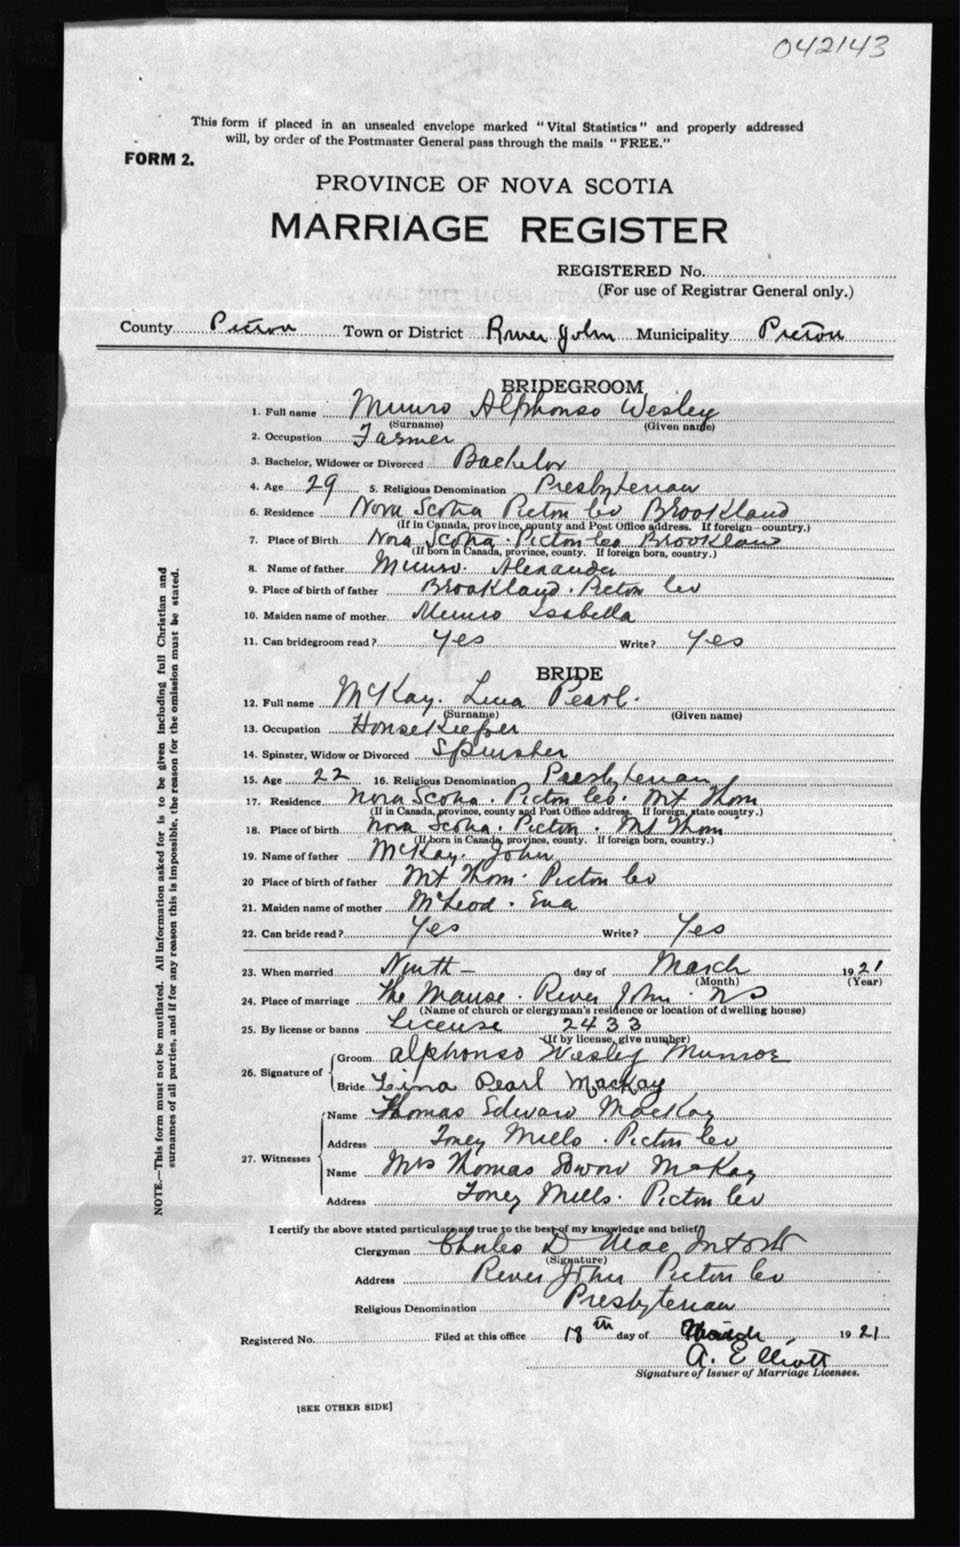 042143
This form if placed in an unsealed envelope marked "Vital Statistics" and properly addressed
will, by order of the Postmaster General pass through the mails "FREE."
FORM 2.
PROVINCE OF NOVA SCOTIA
MARRIAGE REGISTER
REGISTERED No.
(For use of Registrar General only.)
County Pictou Town or District River John Municipality Pictou
BRIDEGROOM
1. Full name Munro Alphonso Wesley
(Surname) (Given name)
2. Occupation Farmer
3. Bachelor, Widower or Divorced Bachelor
4. Age 29 5. Religious Denomination Presbyterian
6. Residence Nova Scotia Pictou Co Brookland
(If in Canada, province, county and Post Office address. If foreign country.)
7. Place of Birth Nova Scotia. Pictou Co. Brookland
(If born in Canada, province, county. If foreign born, country.)
8. Name of father Munro. Alexander
9. Place of birth of father Brookland. Pictou Co
10. Maiden name of mother Munro Isabella
11. Can bridegroom read? Yes Write? Yes
BRIDE
12. Full name McKay. Lina Pearl.
(Surname) (Given name)
13. Occupation HouseKeeper
14. Spinster, Widow or Divorced Spinster
15. Age 22 16. Religious Denomination Presbyterian
17. Residence Nova Scotia. Pictou Co. Mt Thom
(If in Canada, province, county and Post Office address. If foreign, state country.)
18. Place of birth Nova Scotia. Pictou. Mt Thom
(If born in Canada, province, county. If foreign born, country.)
19. Name of father McKay. John
20 Place of birth of father Mt Thom. Pictou Co
21. Maiden name of mother McLeod. Eva
22. Can bride read? Yes Write? Yes
23. When married Ninth day of March 1921
(Month) (Year)
24. Place of marriage The Manse. River John. NS
(Name of church or clergyman's residence or location of dwelling house)
25. By license or banns License 2433
(If by license, give number)
26. Signature of
Groom Alphonso Wesley Munroe
Bride Lina Pearl MacKay
27. Witnesses
Name Thomas Edward MacKay
Address Toney Mills. Pictou Co
Name Mrs Thomas Edward McKay
Address Toney Mills. Pictou Co
I certify the above stated particulars are true to the best of my knowledge and belief.
Clergyman Charles D MacIntosh
(Signature)
Address River John Pictou Co
Religious Denomination Presbyterian
Registered No. Filed at this office 18th day of March 1921
A. Elliott
Signature of Issuer of Marriage Licenses.
[SEE OTHER SIDE]
NOTE.—This form must not be mutilated. All information asked for is to be given including full Christian and
surnames of all parties, and if for any reason this is impossible, the reason for the omission must be stated.